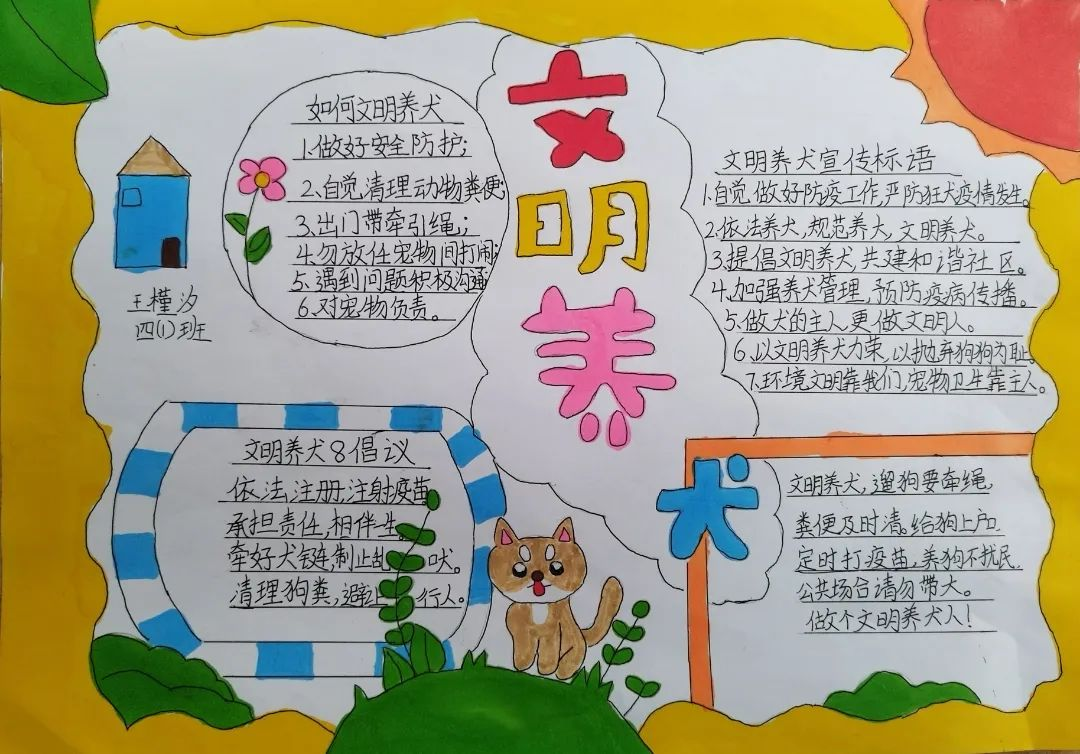 文明养犬
如何文明养犬
1.做好安全防护;
2.自觉清理动物粪便;
3.出门带牵引绳;
4.勿放任宠物间打闹;
5.遇到问题积极沟通
6.对宠物负责。
王槿汐
四(1)班
文明养犬宣传标语
1.自觉做好防疫工作,严防狂犬疫情发生。
2.依法养犬,规范养犬,文明养犬。
3.提倡文明养犬,共建和谐社区。
4.加强养犬管理,预防疫病传播。
5.做犬的主人,更做文明人。
6.以文明养犬为荣,以抛弃狗狗为耻。
7.环境文明靠我们,宠物卫生靠主人。
文明养犬8倡议
依法注册注射疫苗
承担责任,相伴一生
牵好犬链,制止乱 吠。
清理狗粪,避让 行人。
文明养犬,遛狗要牵绳,
粪便及时清。给狗上户口
定时打疫苗,养狗不扰民.
公共场合请勿带犬。
做个文明养犬人!